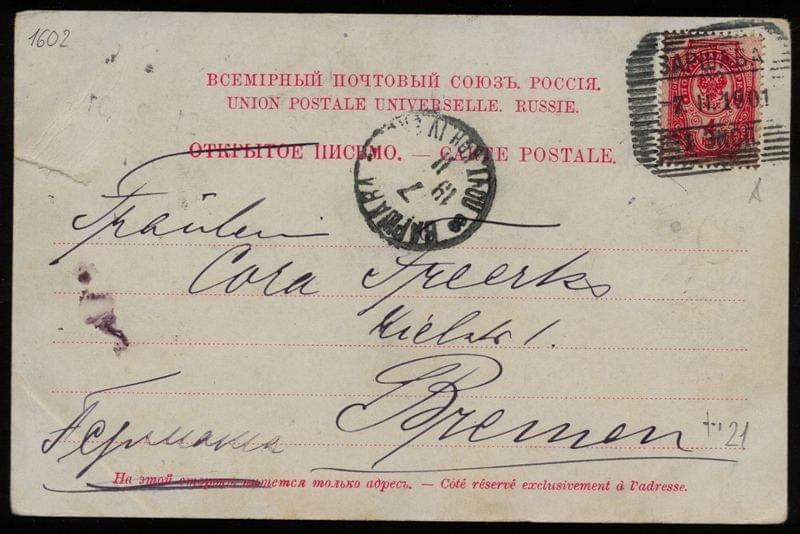 1602
ВСЕМІРНЫЙ ПОЧТОВЫЙ СОЮЗЪ. РОССІЯ.
UNION POSTALE UNIVERSELLE. RUSSIE.
ОТКРЫТОЕ ПИСЬМО. — CARTE POSTALE.
ВАРШАВА
2 II.1901
ВАРШАВА
7
II
19
Fräulein
Cora Freerks
Kielstr 1.
Bremen
21
Германія
На этой сторонѣ пишется только адресъ. — Côté réservé exclusivement à l'adresse.